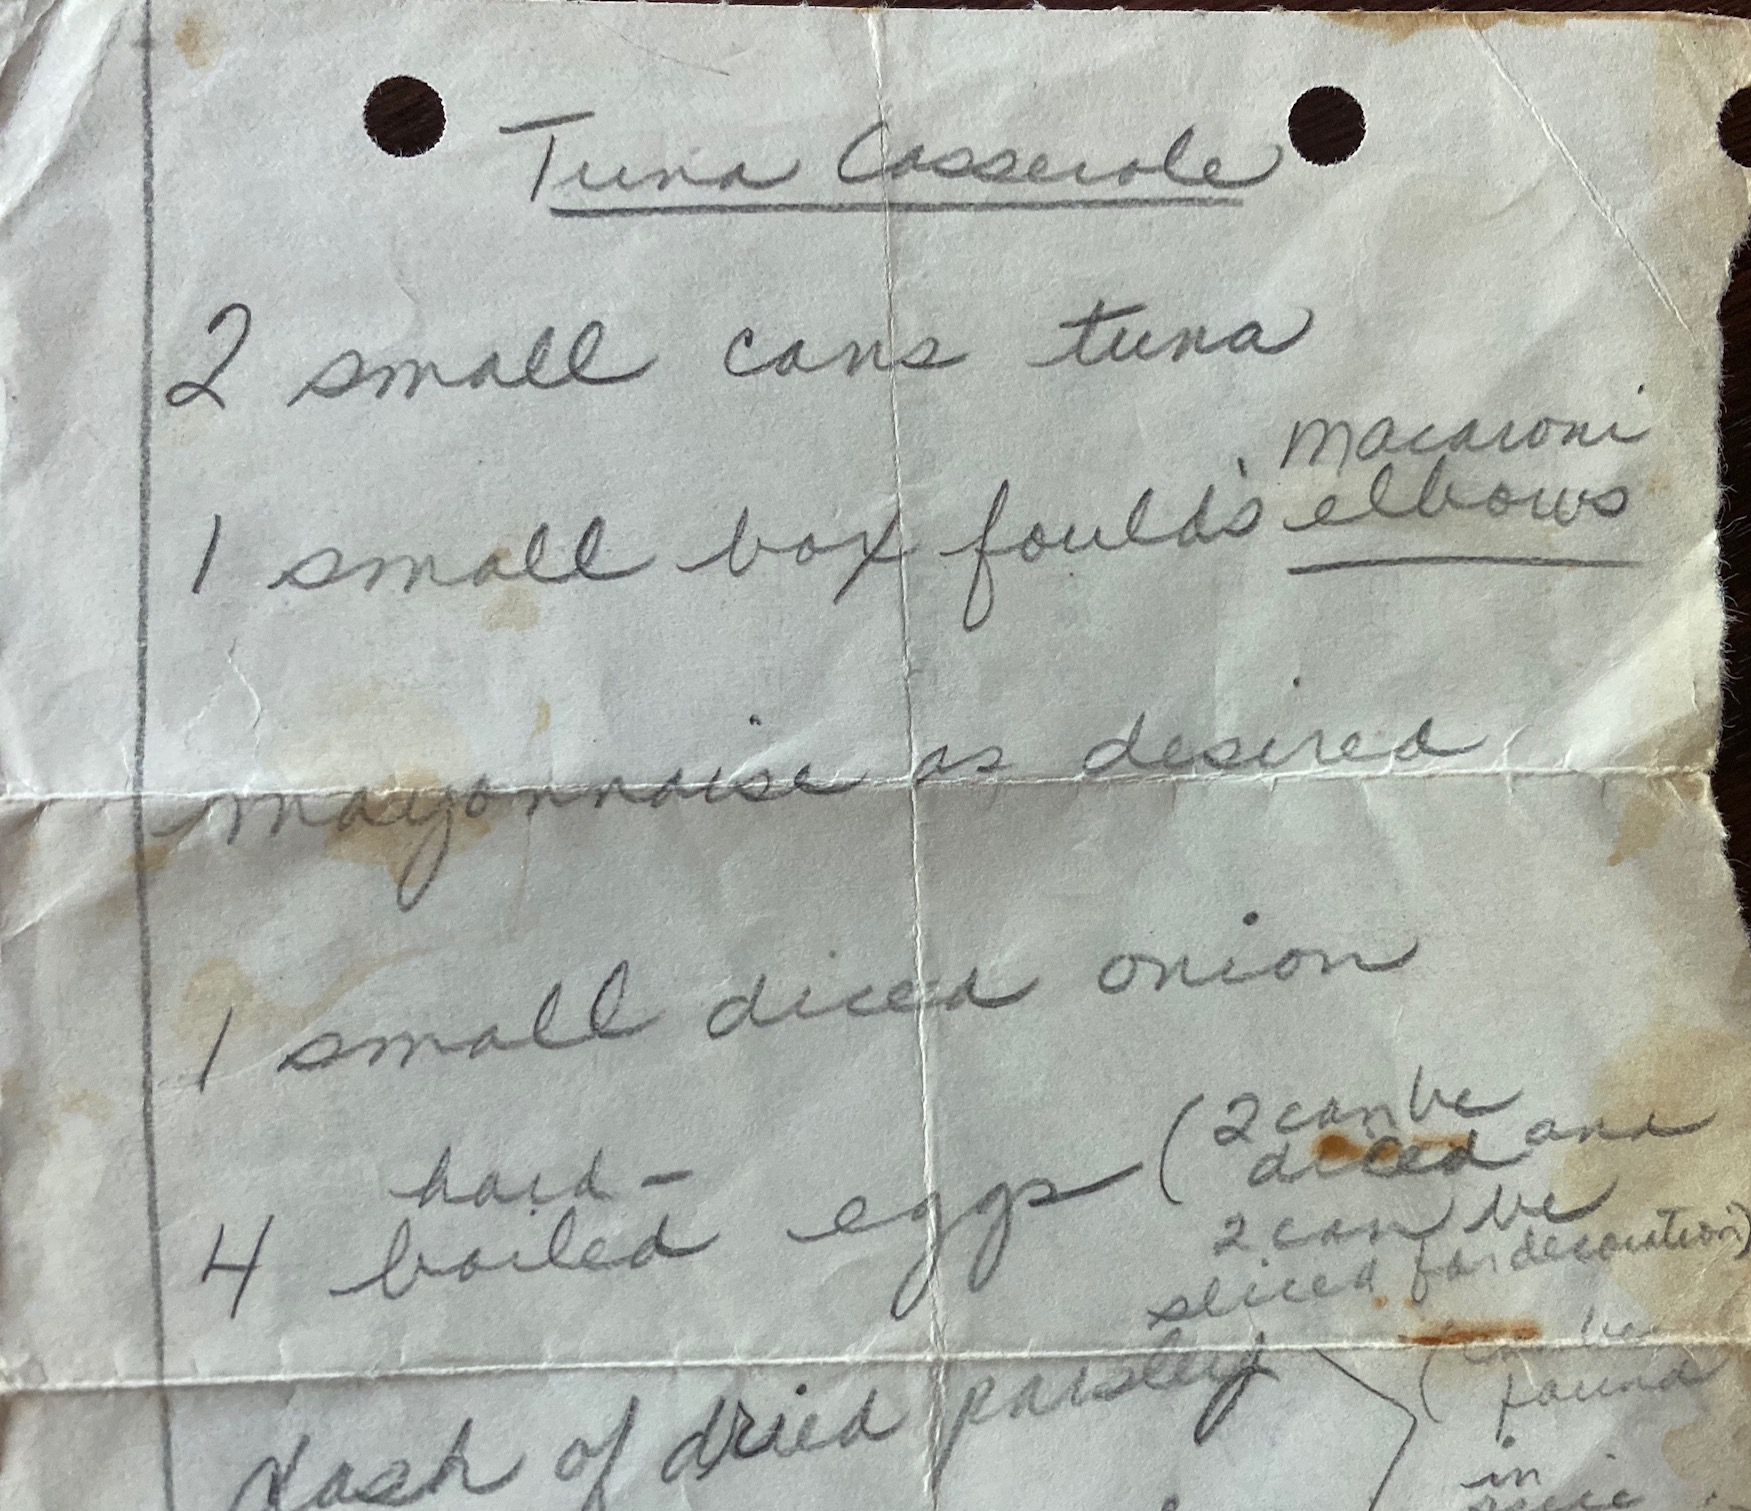 Tuna Casserole
2 small cans tuna
macaroni
1 small box fould's elbows
mayonnaise as desired
1 small diced onion
hard-
4 boiled eggs (2 can be
diced and
2 can be
sliced for decoration)
dash of dried parsley
(can be
found
in